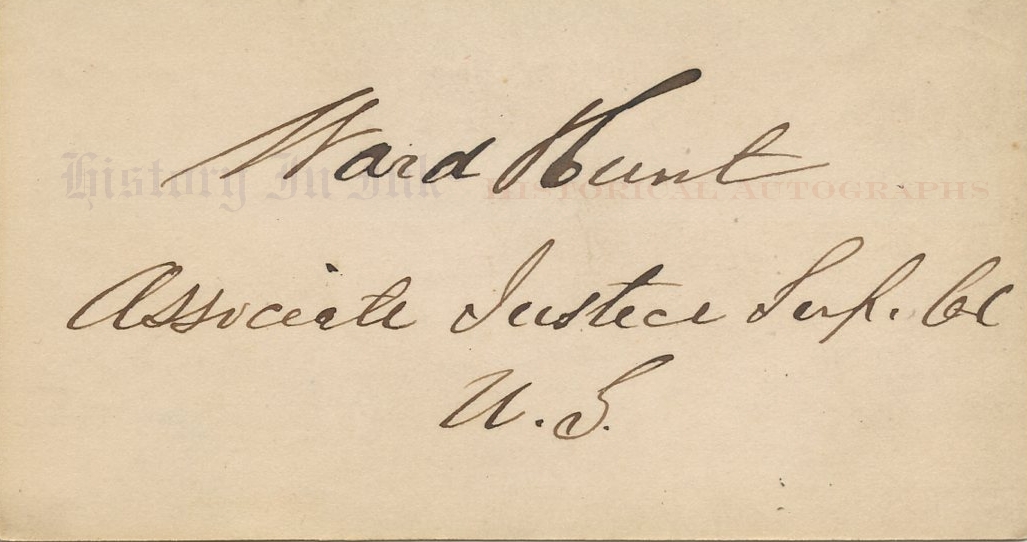 Ward Hunt
History In Ink HISTORICAL AUTOGRAPHS
Associate Justice Sup. Ct
U.S.